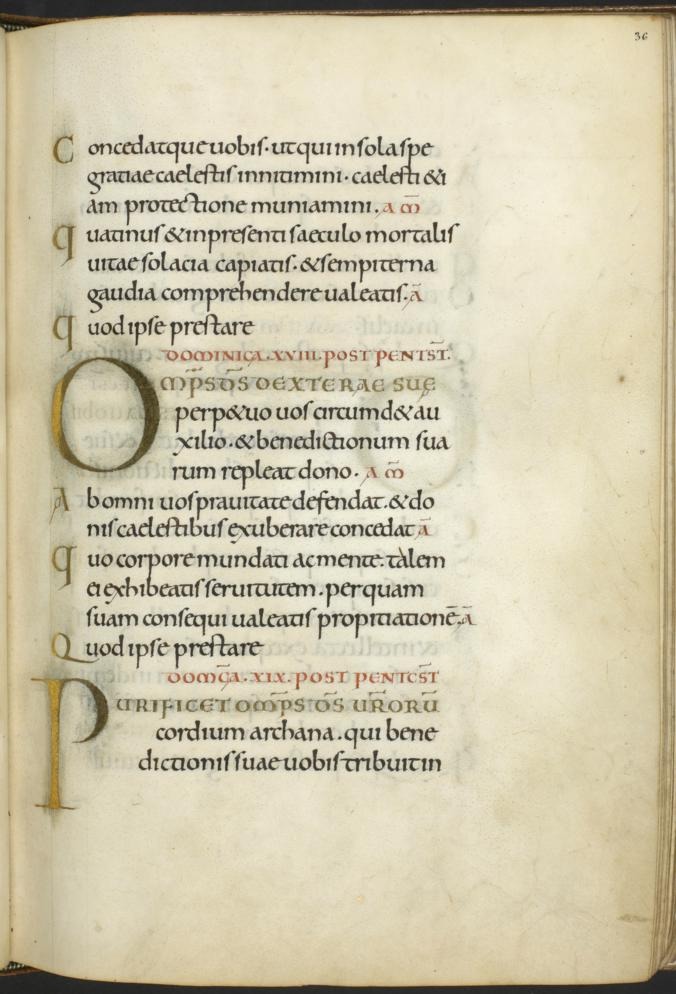 36
Concedatque uobis. ut qui in sola spe
gratiae caelestis innitimini. caelesti &i
am protectione muniamini. a m̄
quatinus & in presenti saeculo mortalis
uitae solacia capiatis. & sempiterna
gaudia comprehendere ualeatis. ā
quod ipse prestare
DOMINICA. XVIII. POST PENTST̄.
OMP̄S D̄S DEXTERAE SUE
perp&uo uos circumd& au
xilio. & benedictionum sua
rum repleat dono. a m̄
Ab omni uos prauitate defendat. & do
nis caelestibus exuberare concedat ā
quo corpore mundati ac mente. talem
ei exhibeatis seruitutem. per quam
suam consequi ualeatis propitiationē. ā
Quod ipse prestare
DOMC̄A. XIX. POST PENTCST̄
PURIFICET OMP̄S D̄S UR̄ORŪ
cordium archana. qui bene
dictionis suae uobis tribuit in